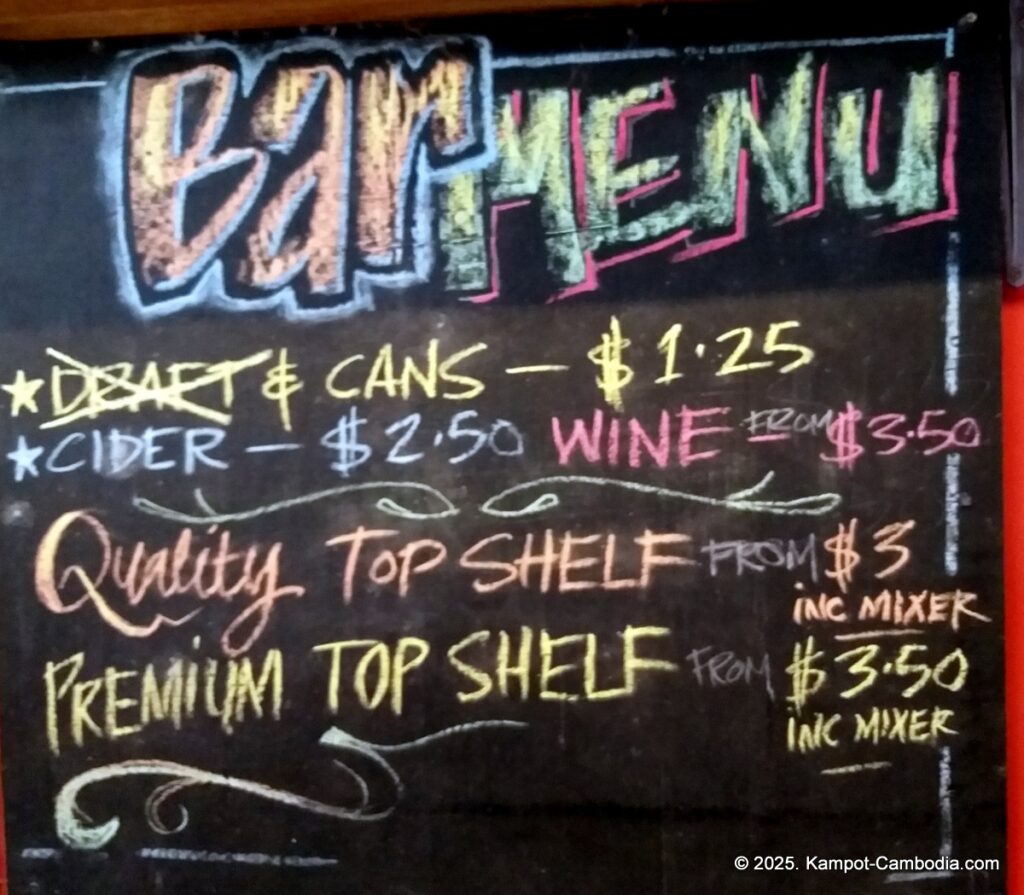 Bar MENU
★ DRAFT & CANS — $1.25
★ CIDER — $2.50 WINE FROM $3.50
Quality TOP SHELF FROM $3
INC MIXER
PREMIUM TOP SHELF FROM $3.50
INC MIXER
© 2025. Kampot-Cambodia.com